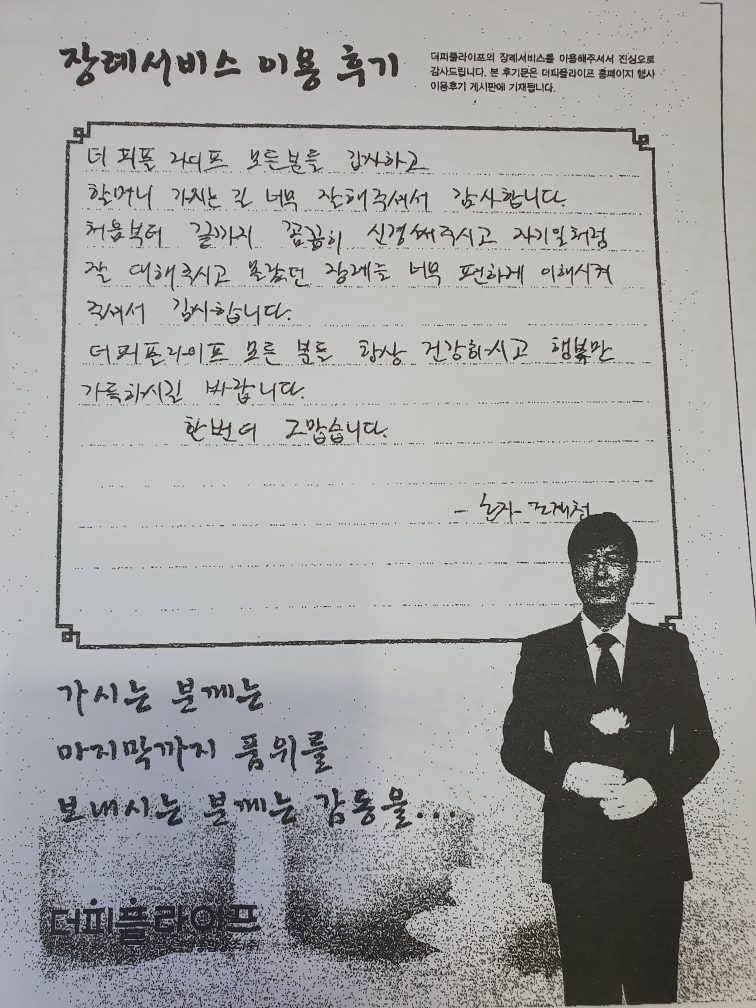 장례서비스 이용 후기
더피플라이프의 장례서비스를 이용해주셔서 진심으로
감사드립니다. 본 후기문은 더피플라이프 홈페이지 행사
이용후기 게시판에 기재됩니다.
더 피플 라이프 모든분들 감사하고
할머니 가시는 길 너무 잘해주셔서 감사합니다.
처음부터 끝까지 꼼꼼히 신경써주시고 자기일처럼
잘 대해주시고 몰랐던 장례를 너무 편하게 이해시켜
주셔서 감사합니다.
더피플라이프 모든 분들 항상 건강하시고 행복만
가득하시길 바랍니다.
한번더 고맙습니다.
가시는 분께는
마지막까지 품위를
보내시는 분께는 감동을...
더피플라이프